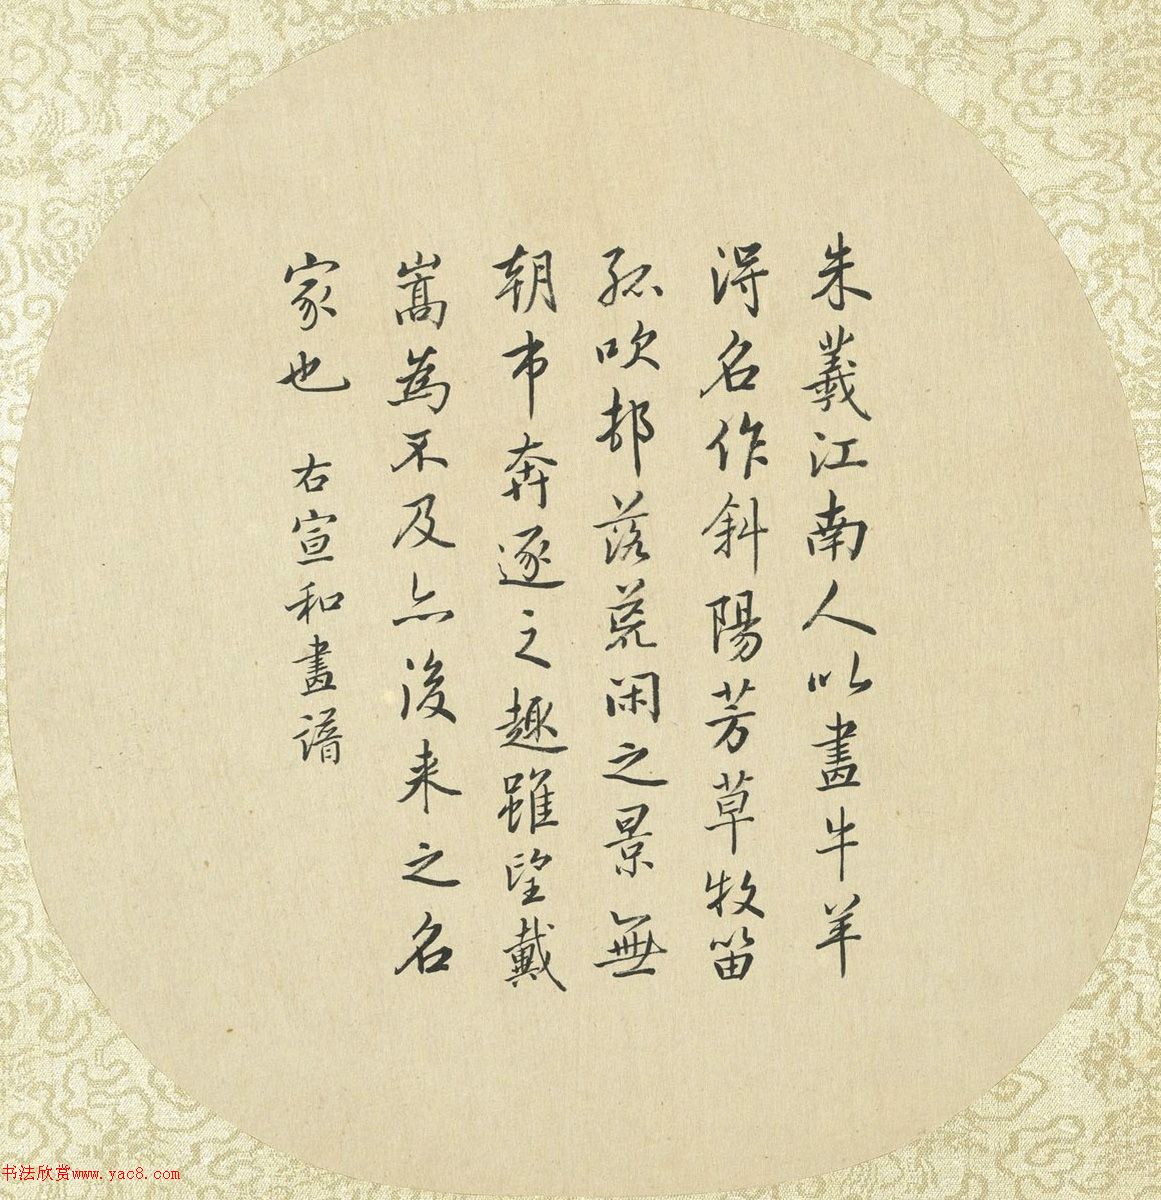 朱羲江南人以畫牛羊
得名作斜陽芳草牧笛
孤吹邨落荒閑之景無
朝市奔逐之趣雖望戴
嵩為不及亦後来之名
家也 右宣和畫譜
书法欣赏www.yac8.com